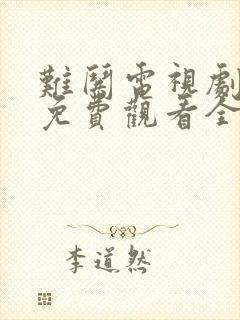 難鬪電視劇
免費觀看全
李道然